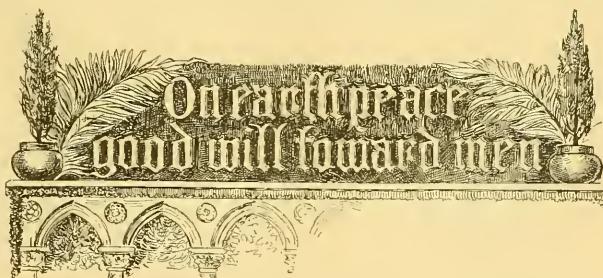 On earth peace
good will toward men